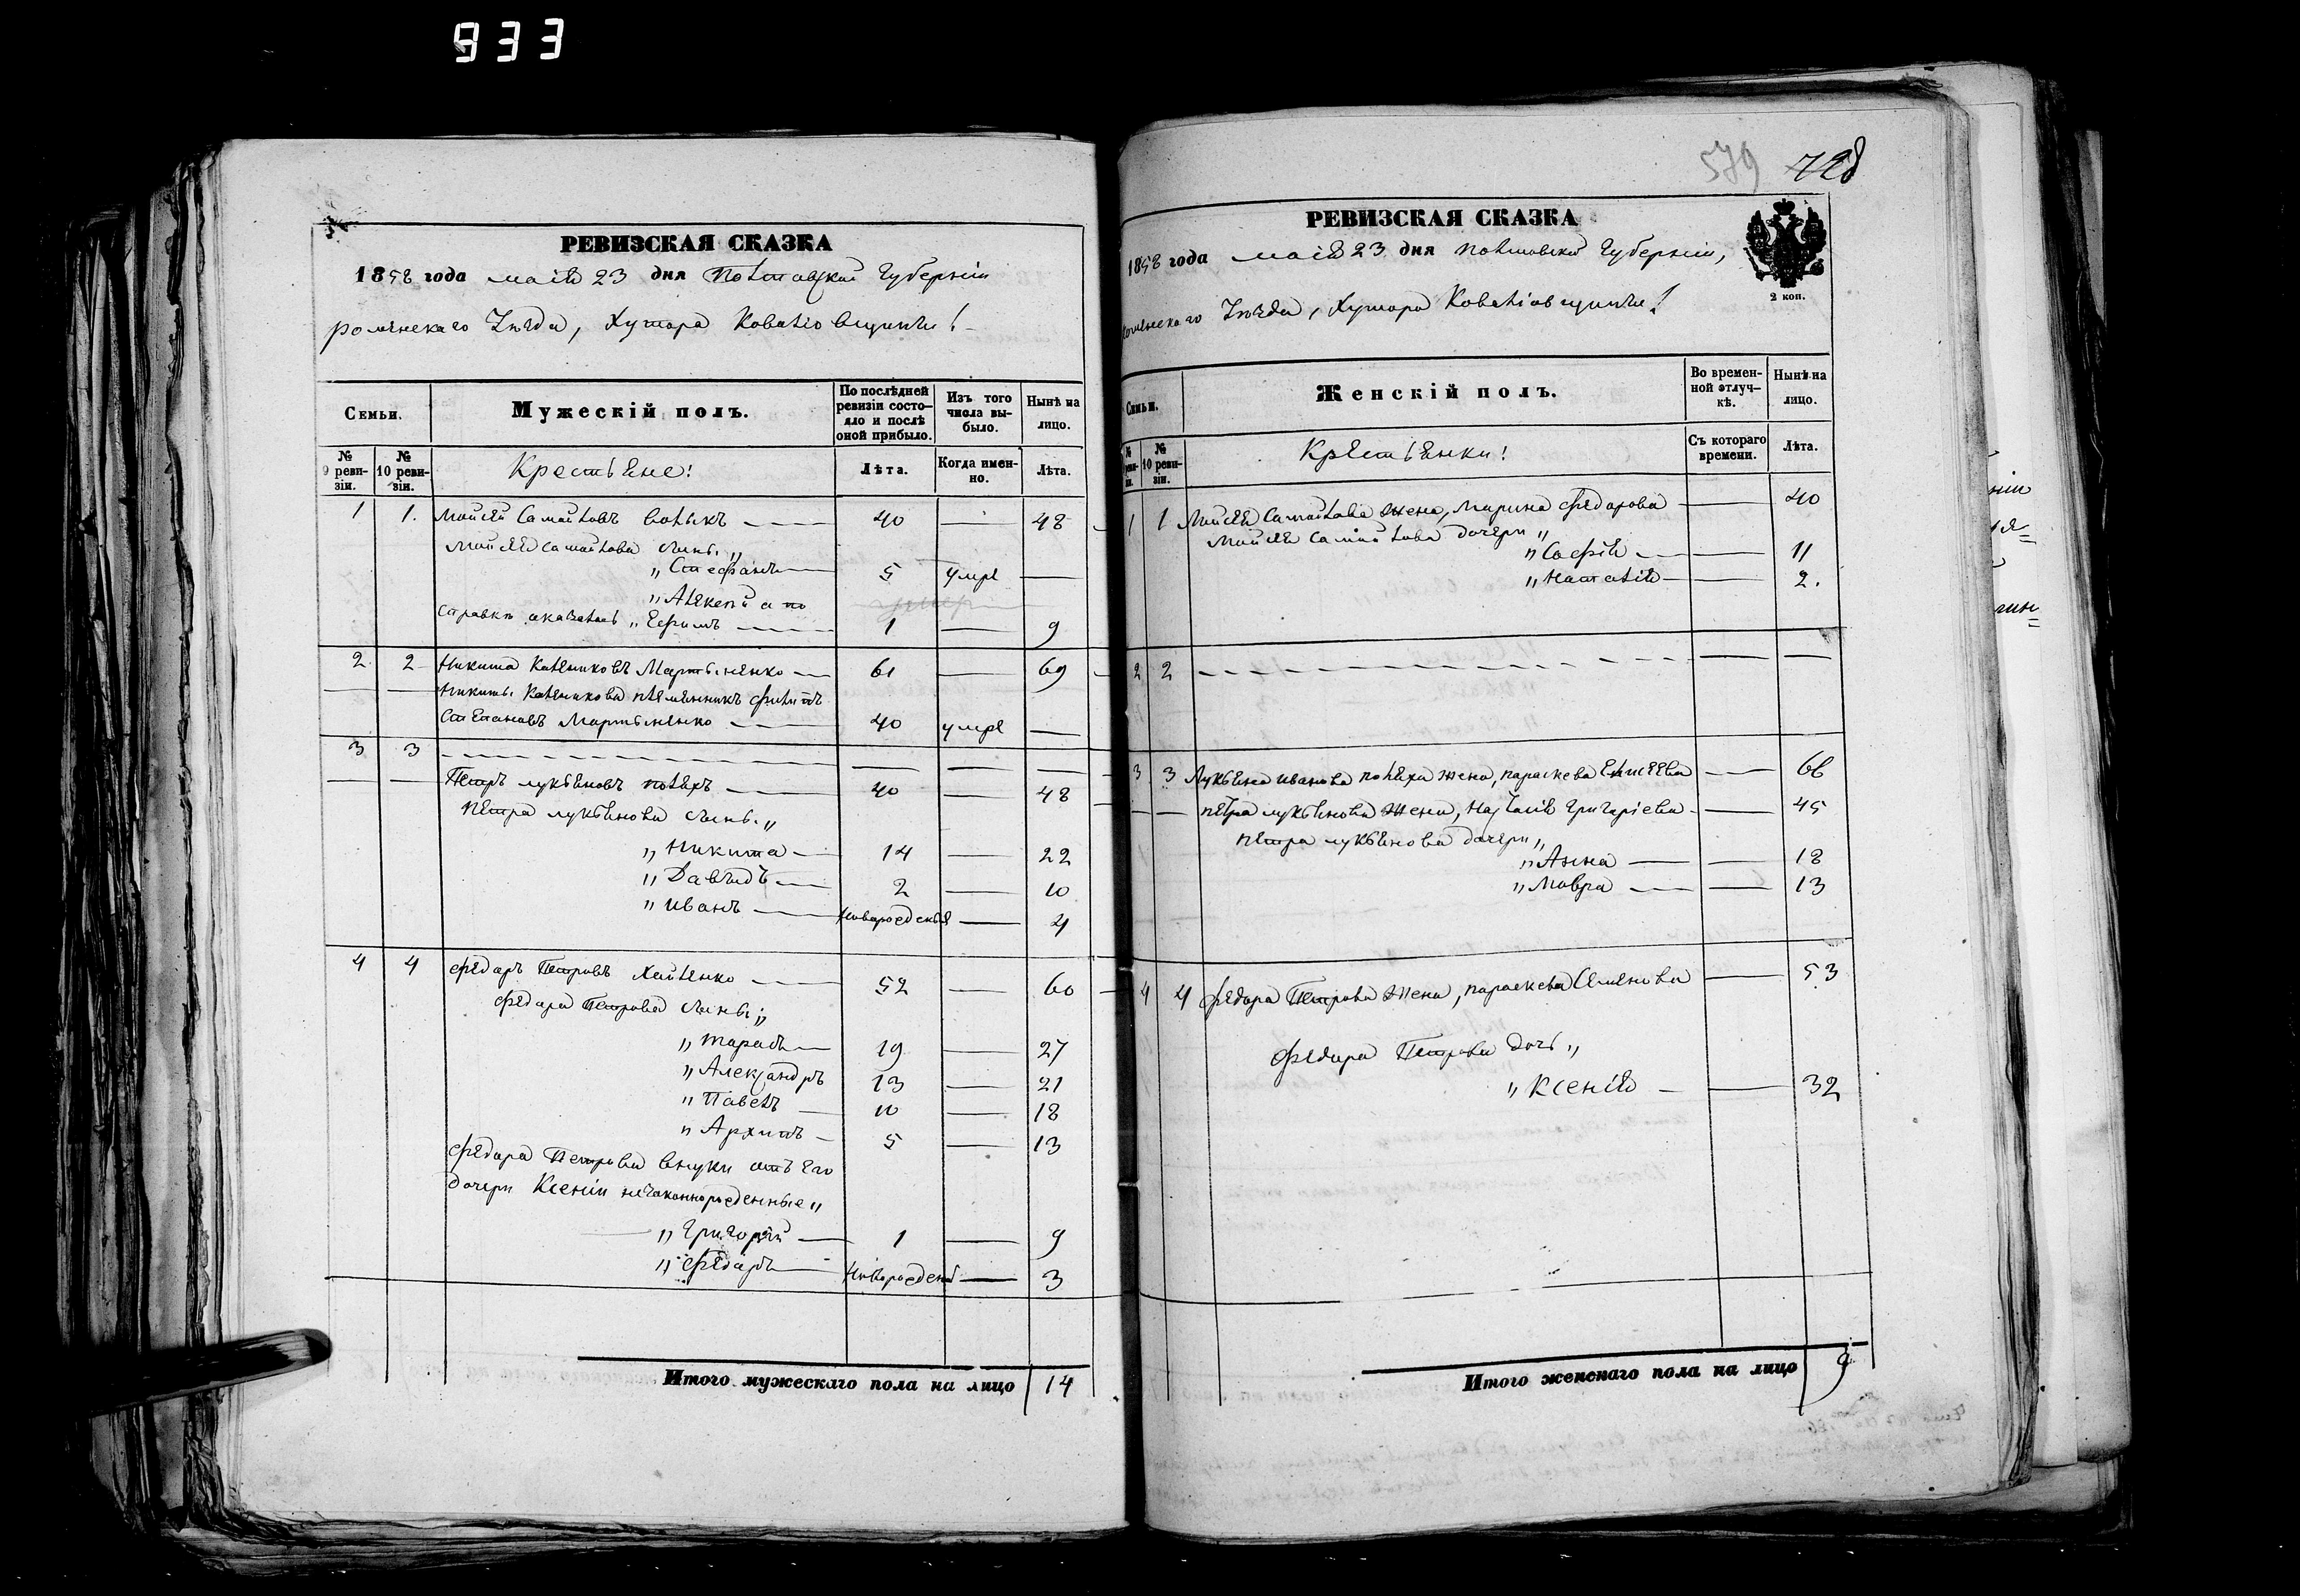 933
РЕВИЗСКАЯ СКАЗКА
1858 года маія 23 дня Полтавской Губерніи
роменскаго Уѣзда, Хутора Ковалювщины!
Семьи.
Мужескій полъ.
По послѣдней ревизіи состояло и послѣ оной прибыло.
Изъ того числа выбыло.
Нынѣ на лицо.
№ 9 ревизіи.
№ 10 ревизіи.
Крестьяне!
Лѣта.
Когда именно.
Лѣта.
1 1. Мойсей Самойловъ 40 — 48
Мойсея Самойлова сыны „
„ Стефанъ 5 умре —
„ Алексѣй а по
справки оказался „ Ефимъ 1 — 9
2 2 Никита Калениковъ Мартыненко 61 — 69
Никиты Каленикова племянникъ Филипъ
Степановъ Мартыненко 40 умре —
3 3
Петръ лукьяновъ полехъ 40 — 48
Петра лукьянова сыны „
„ Никита 14 — 22
„ Давыдъ 2 — 10
„ Иванъ новорожденъ — 4
4 4 Федоръ Петровъ Хайленко 52 — 60
Федора Петрова сыны „
„ Тарасъ 19 — 27
„ Александръ 13 — 21
„ Павелъ 10 — 18
„ Архипъ 5 — 13
Федора Петрова внуки отъ его
дочери Ксеніи незаконнорожденные „
„ Григорій 1 — 9
„ Федоръ новорожденъ — 3
Итого мужескаго пола на лицо 14
579
РЕВИЗСКАЯ СКАЗКА
2 коп.
1858 года маія 23 дня Полтавской Губерніи,
роменскаго Уѣзда, Хутора Ковалювщины!
Семьи.
Женскій полъ.
Во временной отлучкѣ.
Нынѣ на лицо.
№ 10 ревизіи.
Крестьянки!
Съ котораго времени.
Лѣта.
1 1 Мойсея Самойлова жена, Марина Федорова — 40
Мойсея Самойлова дочери „
„ Софія — 11
„ Наталія — 2.
2 2
3 3 Лукьяна Иванова полеха жена, параскева Елисеева — 66
петра лукьянова жена, Наталія Григоріева — 45
петра лукьянова дочери „
„ Анна — 18
„ Мавра — 13
4 4 Федора Петрова жена, параскева Семенова — 53
Федора Петрова дочь „
„ Ксенія — 32
Итого женскаго пола на лицо 9